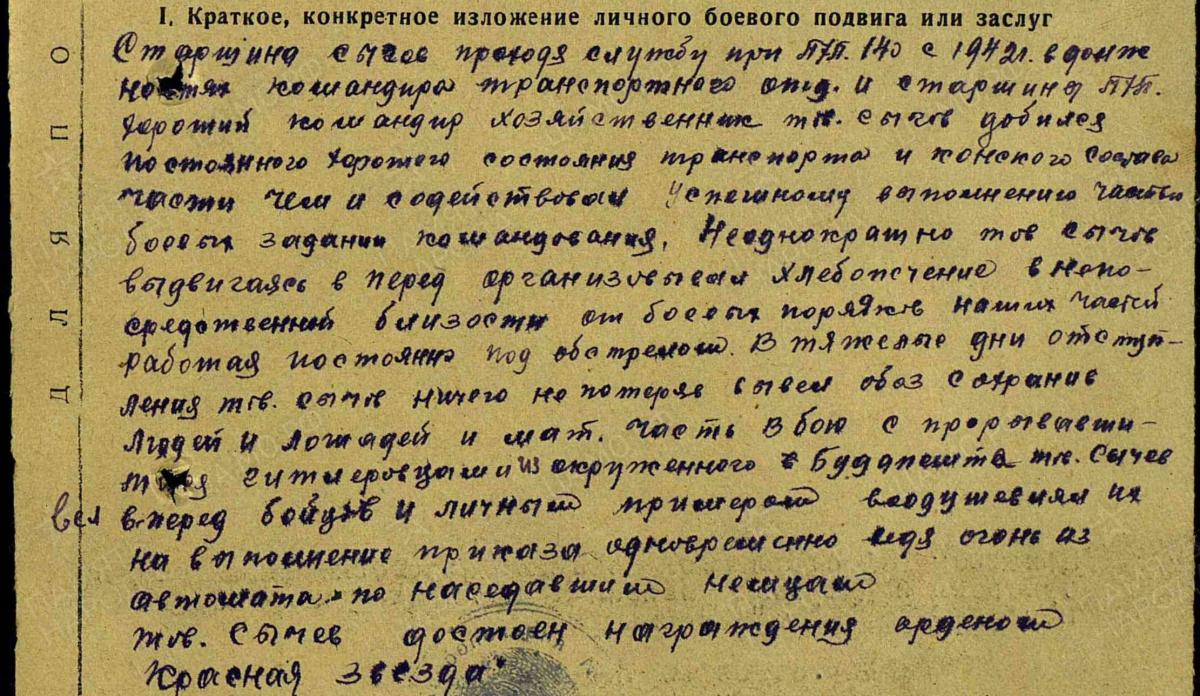 I. Краткое, конкретное изложение личного боевого подвига или заслуг
Старшина Сычов проходя службу при ППП. 140 с 1942г. в долж
ностях командира транспортного отд. и старшины ППП.
Хороший командир хозяйственник тов. Сычов добился
постоянного хорошего состояния транспорта и конского состава
части чем и содействовал успешному выполнению частью
боевых задании командования. Неоднократно тов Сычов
выдвигаясь в перед организовывал хлебопечение в непо-
средственной близости от боевых порядков наших частей
работая постоянно под обстрелом. В тяжелые дни отступ-
ления тов. Сычов ничего не потеряв вывел обоз сохранив
людей и лошадей и мат. часть В бою с прорывавши-
мися гитлеровцами из окруженного Будапешта тов. Сычев
вел вперед бойцов и личным примером воодушевлял их
на выполнение приказа одновременно ведя огонь из
автомата по наседавшим немцам
тов. Сычев достоен награждения орденом
Красная звезда.
ДЛЯ ПО